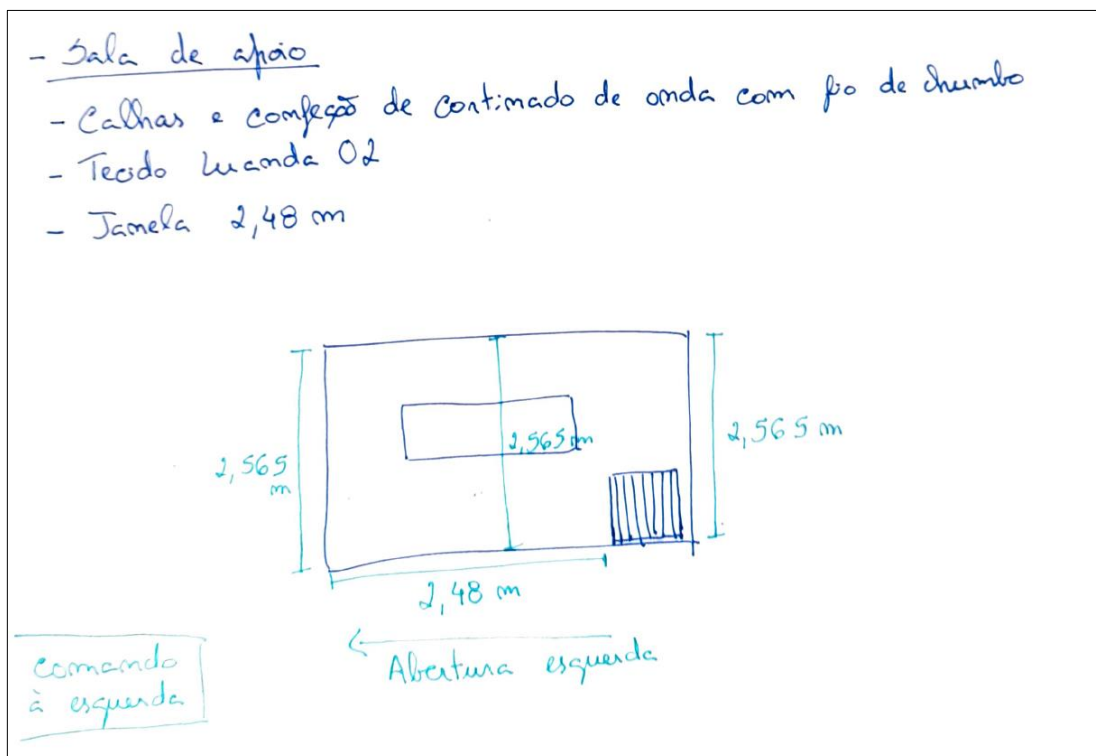 - Sala de apoio
- Calhas e confeção de cortinado de onda com fio de chumbo
- Tecido Luanda 02
- Janela 2,48 m
2,565
m
2,565 m
2,565 m
2,48 m
Abertura esquerda
comando
à esquerda